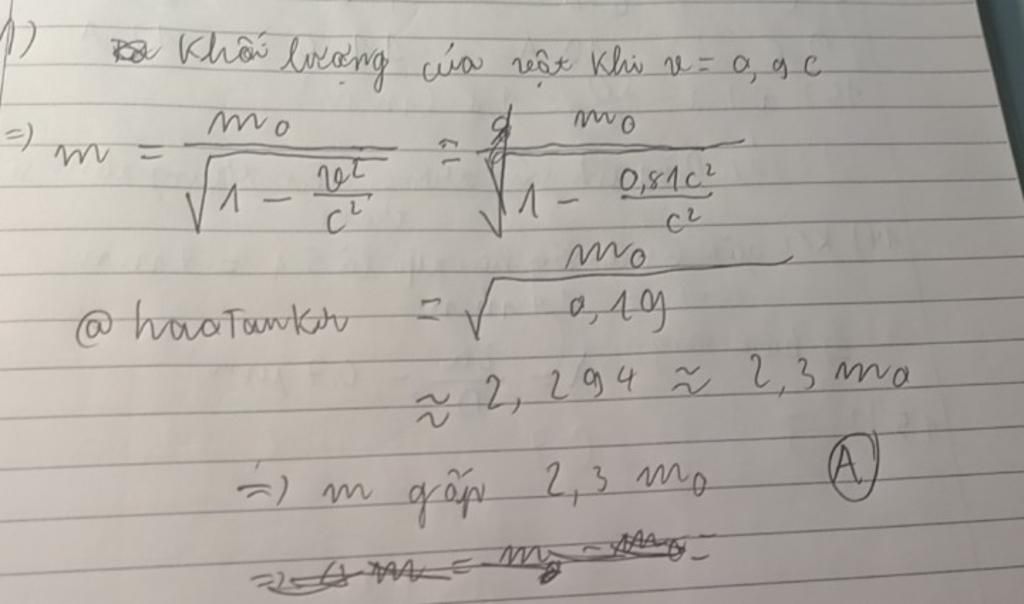 1) Khối lượng của vật khi v = 0,9 c
=> m = m₀ / √(1 - v²/c²) = m₀ / √(1 - 0,81c²/c²)
@haoTankn = m₀ / √0,19
≈ 2,294 ≈ 2,3 m₀
=> m gấp 2,3 m₀ Ⓐ